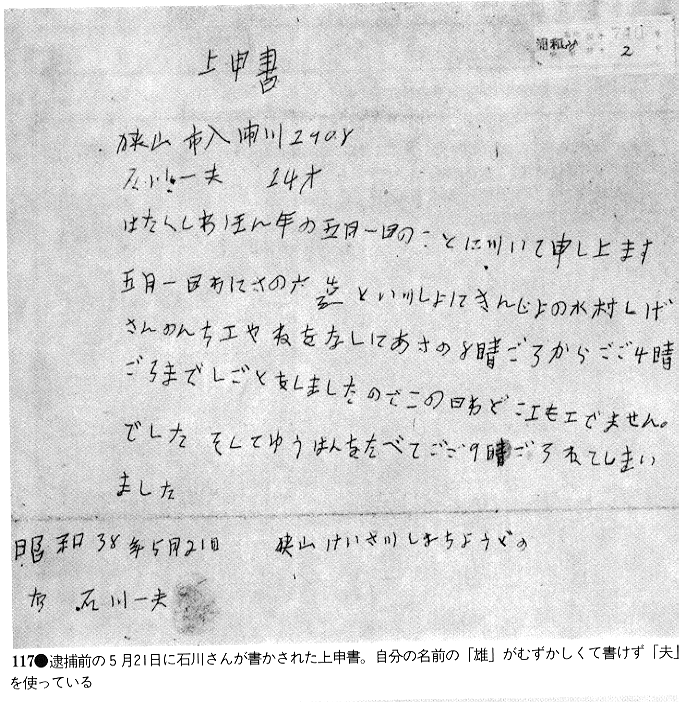 上申書
2
狭山市入川2908
石川一夫 24才
はたくしわほん年の五月一日のことに川いて申し上ます
五月一日わにさの六造といツしよにきんじよの水村しげ
さんのんちエやねをなしにあさの8時ごろからごご4時
ごろまでしごとをしましたのでこの日わどこエもエでません。
でした そしてゆうはんをたべてごご9時ごろねてしまい
ました
昭和38年5月21日 狭山けいさツしよちようどの
右 石川一夫
117●逮捕前の5月21日に石川さんが書かされた上申書。自分の名前の「雄」がむずかしくて書けず「夫」
を使っている